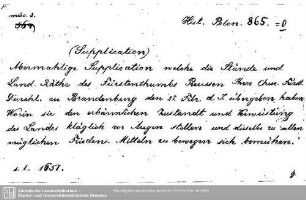 misc. 3.
Hist. Polon. 865. =0
(Supplication)
Abermahlige Supplication welche die Stände und
Land-Räthe des Fürstenthumbs Reussen Ihrer Chur-Fürstl.
Durchl. zu Brandenburg den 27. Febr. d. J. übergeben haben
Worin sie den erbärmlichen Zustandt und Verwüstung
des Landes kläglich vor Augen stellen und dieselbe zu allen
möglichen Friedens-Mitteln zu bewegen sich bemühen.
s. l. 1657.